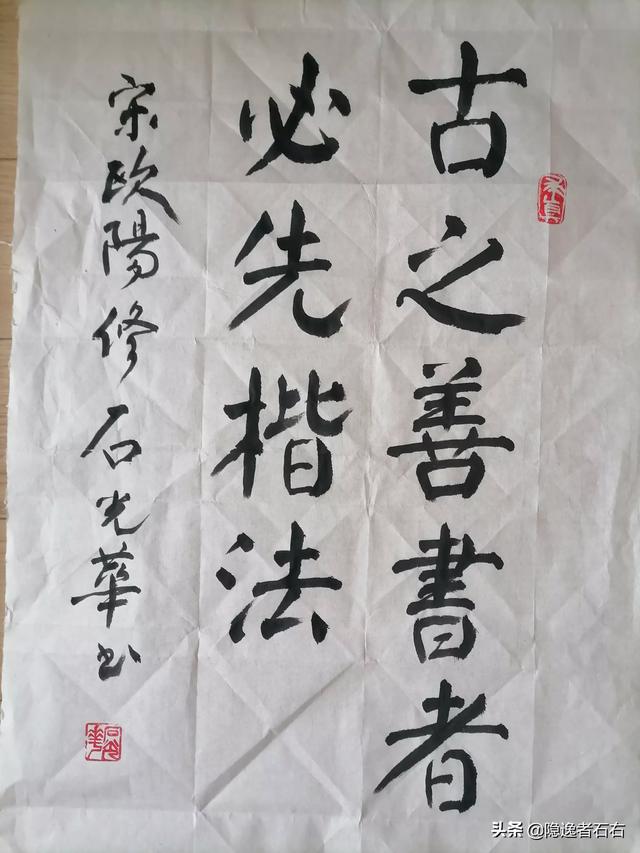 古之善書者
必先楷法
宋欧陽修 石光華书
求真
头条 @隐逸者石右